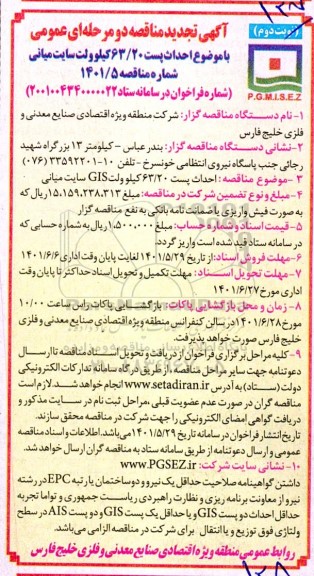 (نوبت دوم)
آگهی تجدید مناقصه دو مرحله‌ای عمومی
با موضوع احداث پست ۶۳/۲۰ کیلو ولت سایت میانی
شماره مناقصه ۱۴۰۱/۵
(شماره فراخوان در سامانه ستاد ۲۰۰۱۰۰۴۳۴۰۰۰۰۰۲۲)
P.G.M.I.S.E.Z
۱- نام دستگاه مناقصه گزار: شرکت منطقه ویژه اقتصادی صنایع معدنی و
فلزی خلیج فارس
۲- نشانی دستگاه مناقصه گزار: بندر عباس - کیلومتر ۱۳ بزرگراه شهید
رجائی جنب پاسگاه نیروی انتظامی خونسرخ - تلفن ۱۰-۳۳۵۹۲۲۰۱ (۰۷۶)
۳- موضوع مناقصه: احداث پست ۶۳/۲۰ کیلو ولت GIS سایت میانی
۴- مبلغ و نوع تضمین شرکت در مناقصه: مبلغ ۱۵،۱۵۹،۲۳۸،۳۱۳ ریال که
به صورت فیش واریزی یا ضمانت نامه بانکی به نفع مناقصه گزار
۵- قیمت اسناد و شماره حساب: مبلغ ۱،۵۰۰،۰۰۰ ریال به شماره حسابی که
در سامانه ستاد قید شده است واریز گردد.
۶- مهلت فروش اسناد: از تاریخ ۱۴۰۱/۵/۲۹ لغایت پایان وقت اداری ۱۴۰۱/۶/۶
۷- مهلت تحویل اسناد: مهلت تکمیل و تحویل اسناد حداکثر تا پایان وقت
اداری مورخ ۱۴۰۱/۶/۲۷
۸- زمان و محل بازگشایی پاکات: بازگشایی پاکات راس ساعت ۱۰/۰۰
مورخ ۱۴۰۱/۶/۲۸ در سالن کنفرانس منطقه ویژه اقتصادی صنایع معدنی و فلزی
خلیج فارس صورت خواهد پذیرفت.
۹- کلیه مراحل برگزاری فراخوان از دریافت و تحویل اسناد مناقصه تا ارسال
دعوتنامه جهت سایر مراحل مناقصه، از طریق درگاه سامانه تدارکات الکترونیکی
دولت (ستاد) به آدرس www.setadiran.ir انجام خواهد شد. لازم است
مناقصه گران در صورت عدم عضویت قبلی، مراحل ثبت نام در سایت مذکور و
دریافت گواهی امضای الکترونیکی را جهت شرکت در مناقصه محقق سازند.
تاریخ انتشار فراخوان در سامانه تاریخ ۱۴۰۱/۵/۲۹ می‌باشد. اطلاعات و اسناد مناقصه
عمومی و ارسال دعوتنامه از طریق سامانه ستاد به مناقصه گران ارسال خواهد شد.
۱۰- نشانی سایت شرکت: www.PGSEZ.ir
داشتن گواهینامه صلاحیت حداقل یک نیرو و دو ساختمان یا رتبه EPC در رشته
نیرو از معاونت برنامه ریزی و نظارت راهبردی ریاست جمهوری و تواما تجربه
حداقل احداث دو پست GIS و یا حداقل یک پست GIS و دو پست AIS در سطح
ولتاژی فوق توزیع و یا انتقال برای شرکت در مناقصه الزامی می‌باشد.
روابط عمومی منطقه ویژه اقتصادی صنایع معدنی و فلزی خلیج فارس